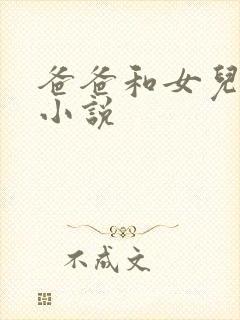 爸爸和女兒
小說
不成文